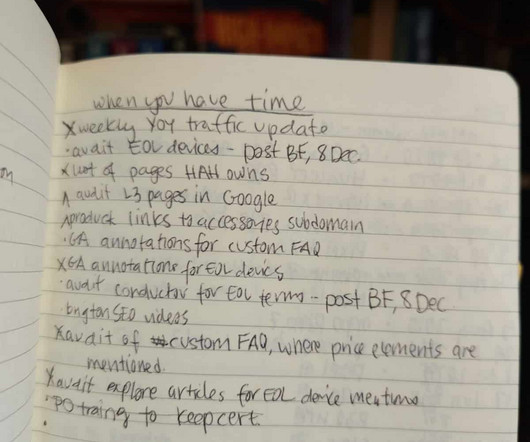 on
when you have time
X weekly YOY traffic update
· audit EOL devices - post BF, 8 Dec.
X list of pages HAH owns
^ audit L3 pages in Google
^ product links to accessories subdomain
· GA annotations for custom FAQ
X GA annotations for EOL devices
· audit conductor for EOL terms - post BF, 8 Dec
· brighton SEO videos
X audit of custom FAQ, where price elements are
mentioned.
X audit explore articles for EOL device mentions
· PO traing to keep cert.
·